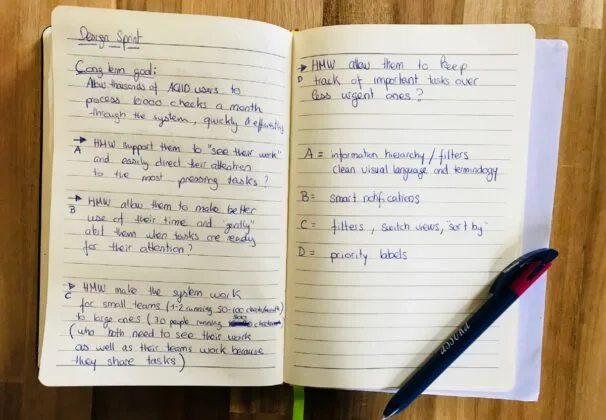 Design Sprint
Long term goal:
Allow thousands of AGIID users to
process 10000 checks a month
through the system, quickly & efficiently
→ HMW support them to "see their work"
A and easily direct their attention
to the most pressing tasks?
→ HMW allow them to make better
B use of their time and "gently"
alert them when tasks are ready
for their attention?
→ HMW make the system work
C for small teams (1-2 running 50-100 checks/month)
to large ones (30 people running checks
(who both need to see their work
as well as their teams work because
they share tasks)
→ HMW allow them to keep
D track of important tasks over
less urgent ones?
A = information hierarchy / filters
clean visual language and terminology
B = smart notifications
C = filters, switch views, "sort by"
D = priority labels